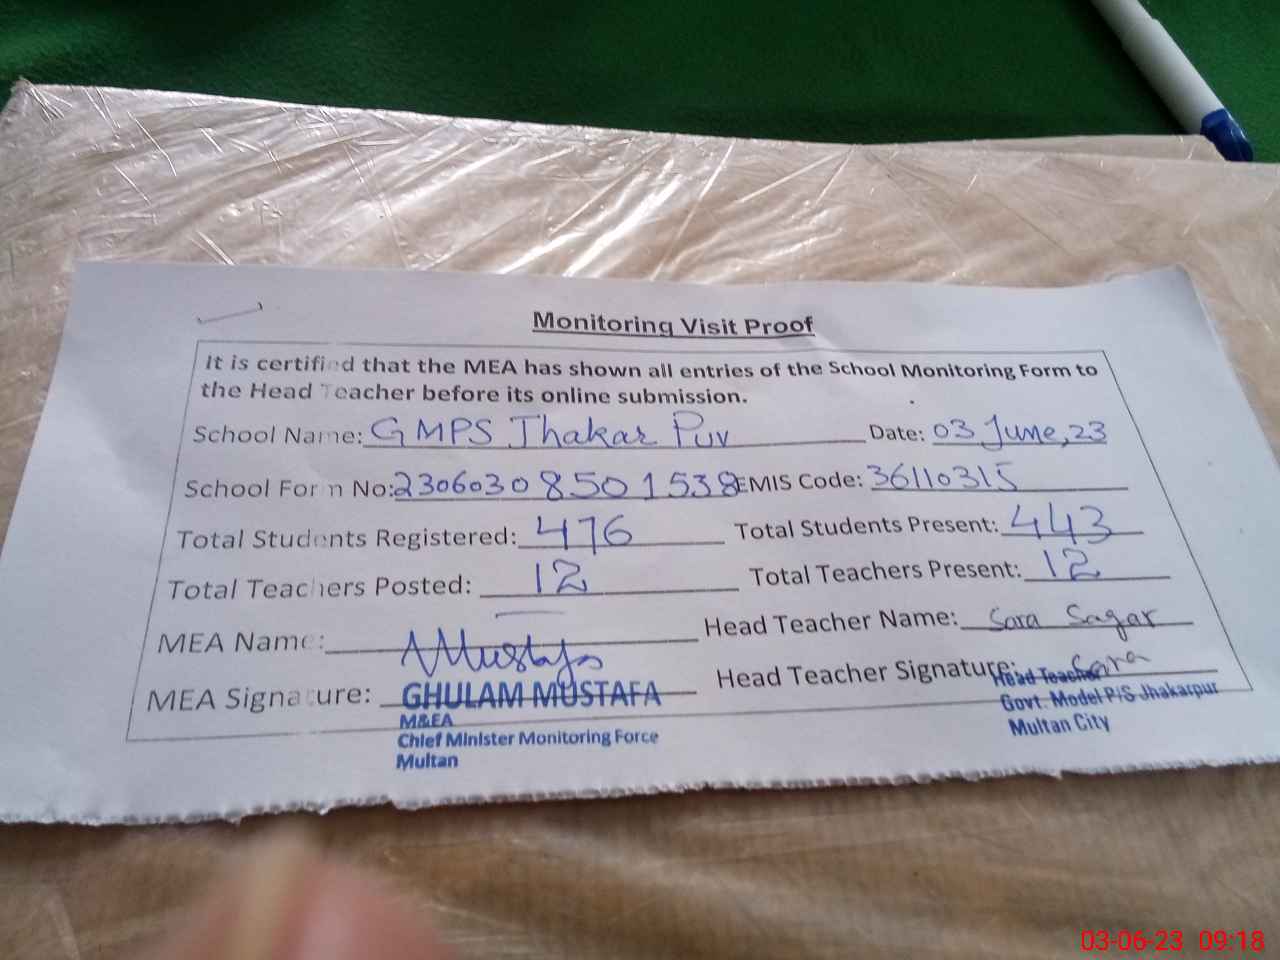 Monitoring Visit Proof
It is certified that the MEA has shown all entries of the School Monitoring Form to
the Head Teacher before its online submission.
School Name: GMPS Jhakar Pur Date: 03 June, 23
School Form No: 23060308501538 EMIS Code: 36110315
Total Students Registered: 476 Total Students Present: 443
Total Teachers Posted: 12 Total Teachers Present: 12
MEA Name: Head Teacher Name: Sara Sagar
MEA Signature: AMustafa Head Teacher Signature: Sara
GHULAM MUSTAFA
M&EA
Chief Minister Monitoring Force
Multan
Head Teacher
Govt. Model P/S Jhakarpur
Multan City
03-06-23 09:18